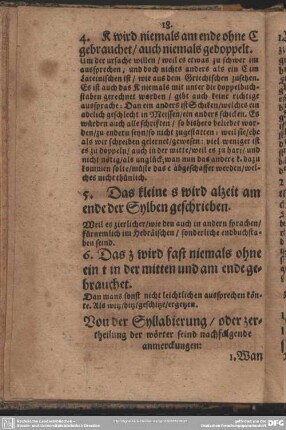 18.
4. K wird niemals am ende ohne C
gebrauchet/auch niemals gedoppelt.
Um der ursache willen / weil es etwas zu schwer im
aussprechen / und doch nichts anders als ein C im
Lateinischen ist/ wie aus dem Griechischen zusehen.
Es ist auch das K niemals mit unter die doppelbuch-
staben gerechnet worden / gibt auch keine richtige
aussprache: Dan ein anders ist Schiken/welches ein
adelich geschlecht in Meissen/ein anders schicken. Es
würden auch alle schrifften / so bishero beliebet wor-
den/zu endern seyn/so nicht zugestatten: weil sie/ehe
als wir schreiben gelernet/gewesen: viel weniger ist
es zu doppeln/auch in der mitte/weil es zu hart/ und
nicht nötig/als unglück/wan nun das andere k. dazu
kommen solte/müste das c abgeschaffet werden/wel-
ches nicht thunlich.
5. Das kleine s wird alzeit am
ende der Sylben geschrieben.
Weil es zierlicher/wie den auch in andern sprachen/
fürnemlich im Hebräischen / sonderliche endbuchsta-
ben seind.
6. Das z wird fast niemals ohne
ein t in der mitten und am ende ge-
brauchet.
Dan mans sonst nicht leichtlichen aussprechen kön-
te. Als witz/hitz/geschütz/ergetzen.
Von der Syllabierung / oder zer-
theilung der wörter seind nachfolgende
anmerckungen:
1. Wan